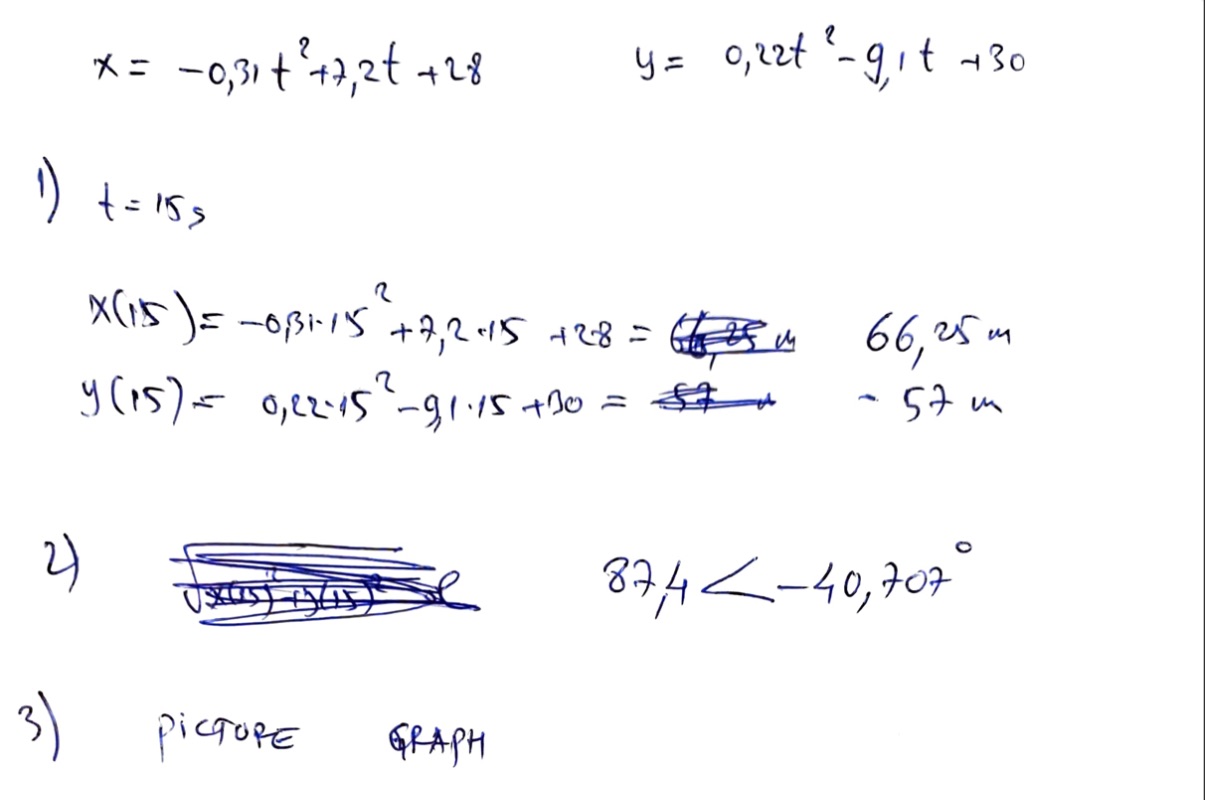 x = -0,31t²+7,2t+28 y = 0,22t²-9,1t+30
1) t=15s
x(15)= -0,31·15²+7,2·15+28 = 66,25 m
y(15)= 0,22·15²-9,1·15+30 = -57 m
2) 87,4∠-40,707°
3) PICTURE GRAPH